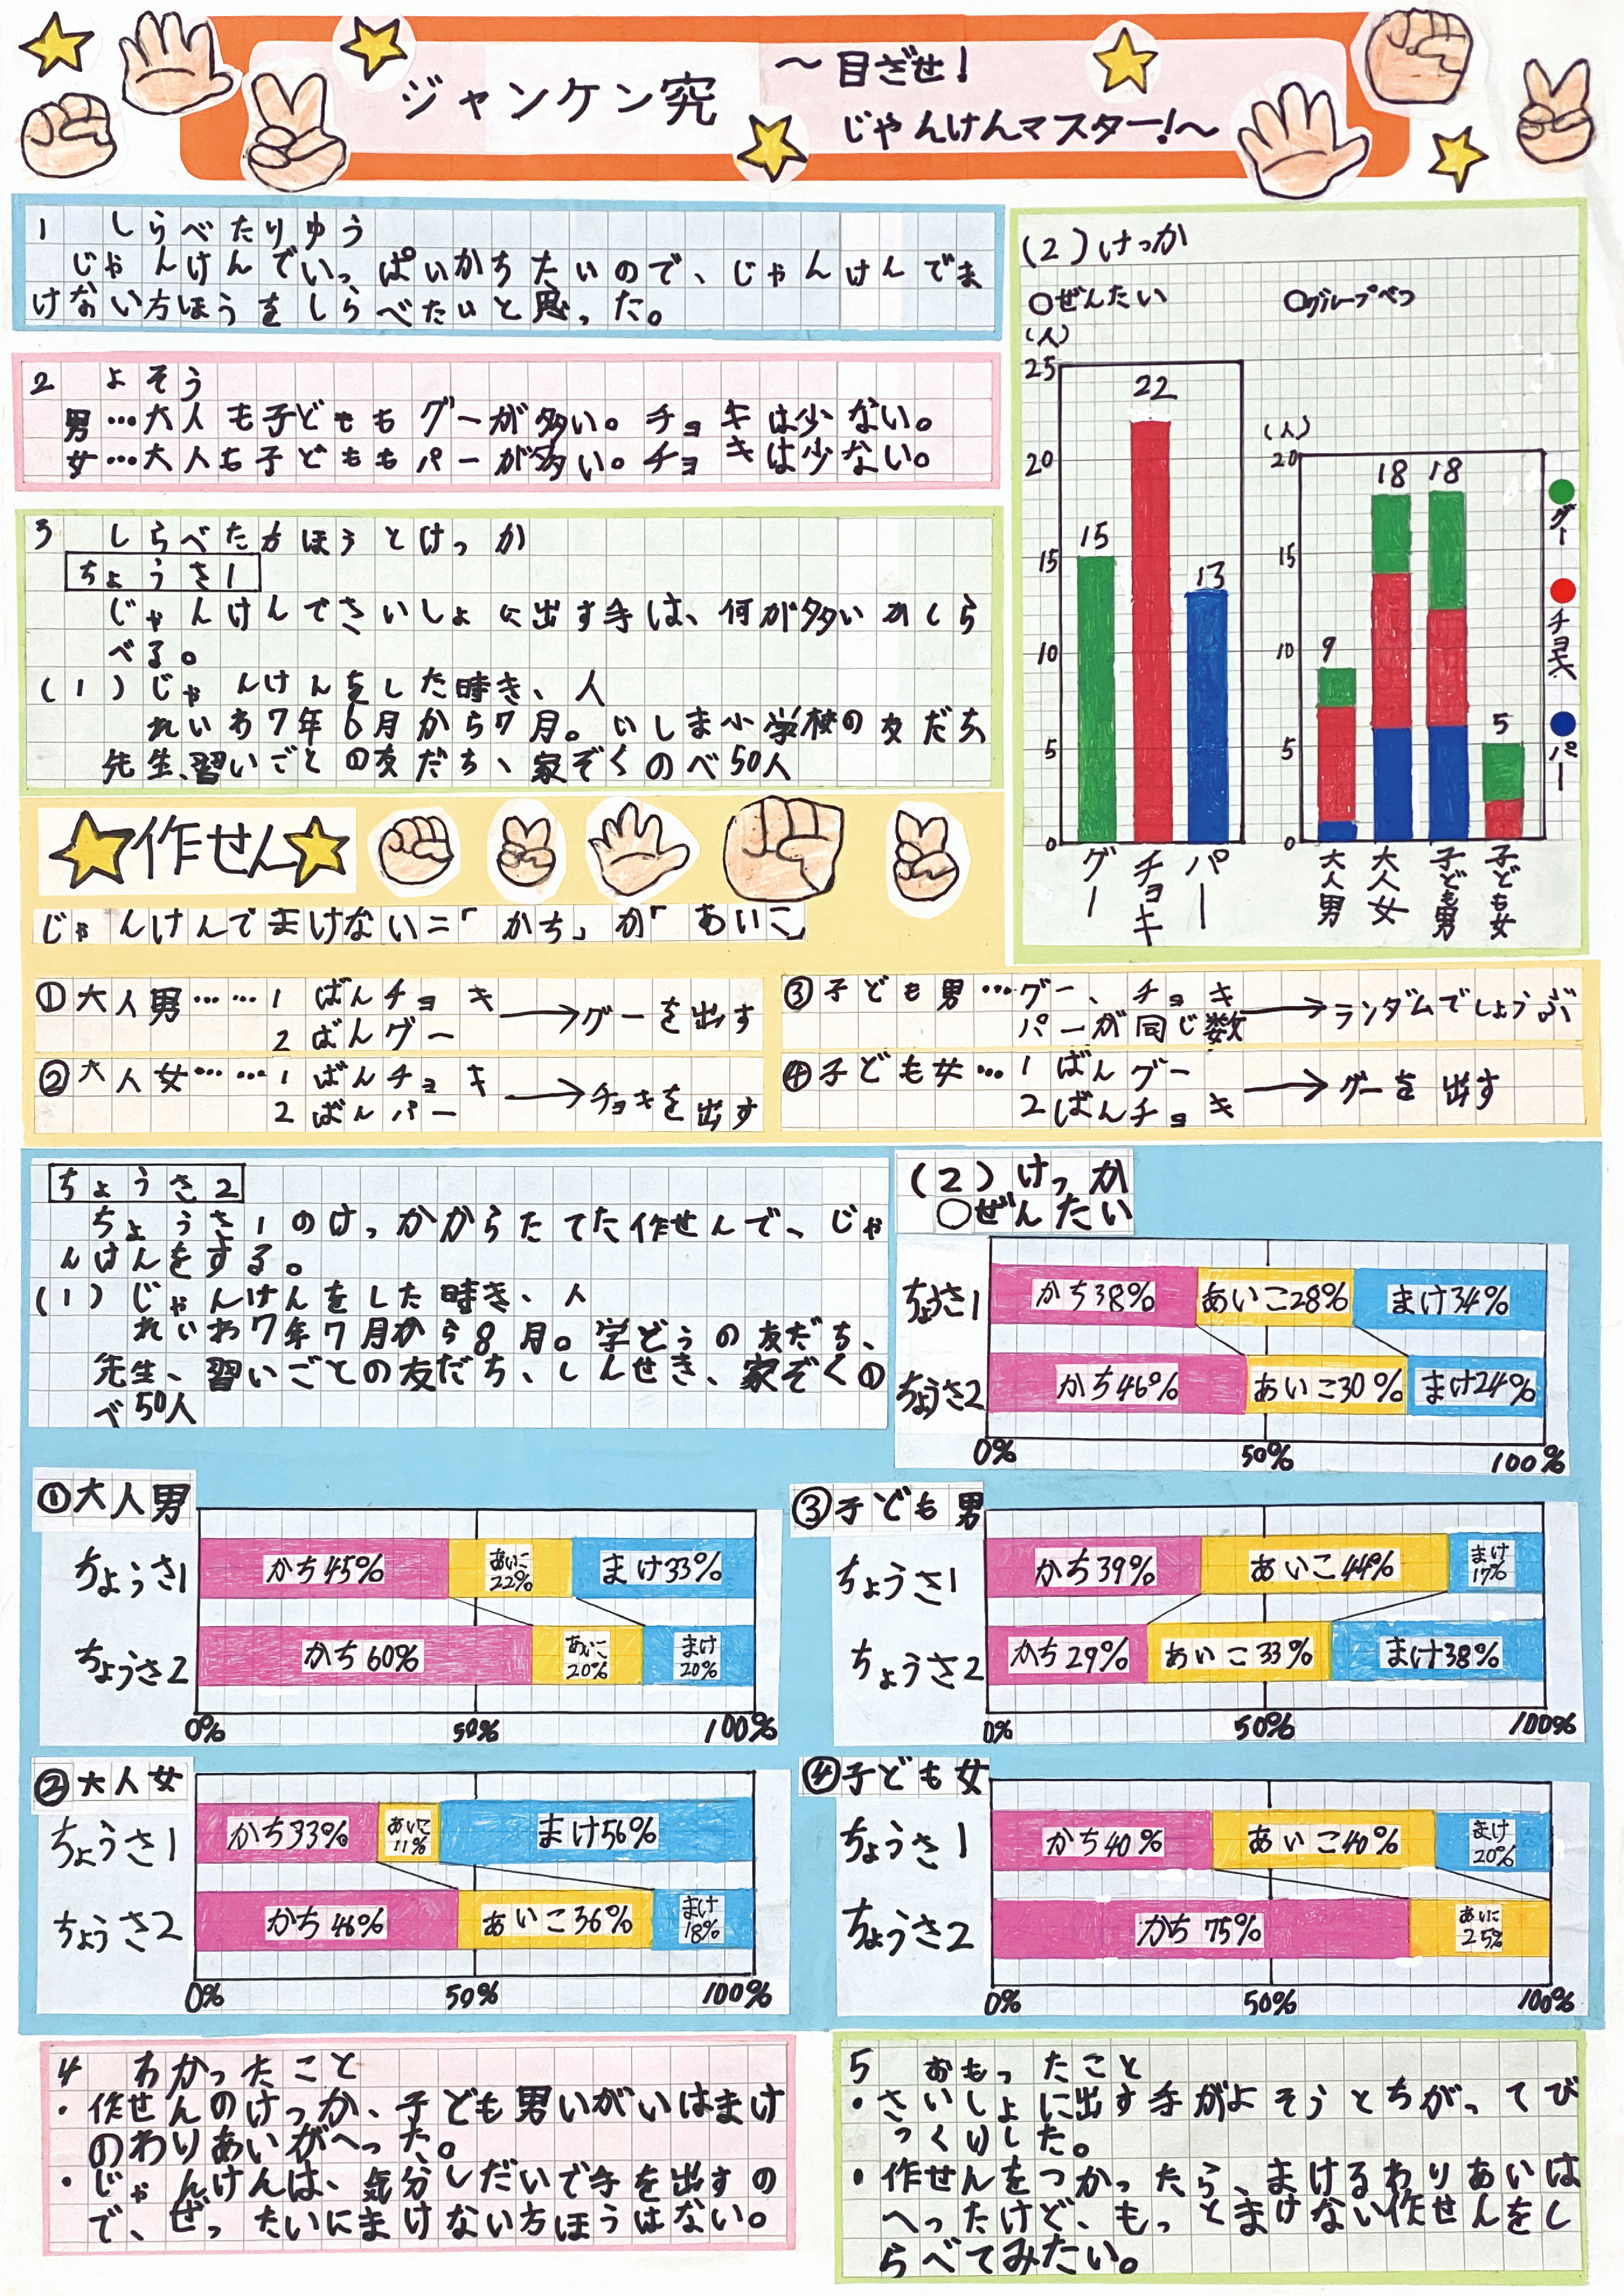 ジャンケン究
～目ざせ!
じゃんけんマスター!～
1 しらべたりゆう
じゃんけんでいっぱいかちたいので、じゃんけんでま
けない方ほうをしらべたいと思った。
2 よそう
男…大人も子どももグーが多い。チョキは少ない。
女…大人も子どももパーが多い。チョキは少ない。
3 しらべた方ほうとけっか
ちょうさ1
じゃんけんでさいしょに出す手は、何が多いかしら
べる。
(1)じゃんけんをした時き、人
れいわ7年6月から7月。いしま小学校の友だち、
先生、習いごとの友だち、家ぞくのべ50人
(2)けっか
○ぜんたい
(人)
25
20
15
10
5
0
15
22
13
グー
チョキ
パー
○グループべつ
(人)
20
15
10
5
0
9
18
18
5
大人男
大人女
子ども男
子ども女
グー
チョキ
パー
作せん
じゃんけんでまけない=「かち」か「あいこ」
①大人男……1ばんチョキ
2ばんグー
→グーを出す
②大人女……1ばんチョキ
2ばんパー
→チョキを出す
③子ども男…グー、チョキ
パーが同じ数
→ランダムでしょうぶ
④子ども女…1ばんグー
2ばんチョキ
→グーを出す
ちょうさ2
ちょうさ1のけっかからたてた作せんで、じゃ
んけんをする。
(1)じゃんけんをした時き、人
れいわ7年7月から8月。学どうの友だち、
先生、習いごとの友だち、しんせき、家ぞくの
べ50人
(2)けっか
○ぜんたい
ちょうさ1 かち38% あいこ28% まけ34%
ちょうさ2 かち46% あいこ30% まけ24%
0% 50% 100%
①大人男
ちょうさ1 かち45% あいこ22% まけ33%
ちょうさ2 かち60% あいこ20% まけ20%
0% 50% 100%
②大人女
ちょうさ1 かち33% あいこ11% まけ56%
ちょうさ2 かち46% あいこ36% まけ18%
0% 50% 100%
③子ども男
ちょうさ1 かち39% あいこ44% まけ17%
ちょうさ2 かち29% あいこ33% まけ38%
0% 50% 100%
④子ども女
ちょうさ1 かち40% あいこ40% まけ20%
ちょうさ2 かち75% あいこ25%
0% 50% 100%
4 わかったこと
・作せんのけっか、子ども男いがいはまけ
のわりあいがへった。
・じゃんけんは、気分しだいで手を出すの
で、ぜったいにまけない方ほうはない。
5 おもったこと
・さいしょに出す手がよそうとちがってび
っくりした。
・作せんをつかったら、まけるわりあいは
へったけど、もっとまけない作せんをし
らべてみたい。